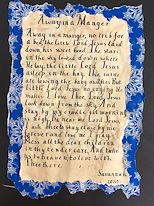 Away in a Manger
Away in a manger, no crib for
a bed, the little Lord Jesus laid
down his sweet head. The stars
in the sky looked down where
He lay, the little Lord Jesus
asleep in the hay. The cattle
are lowing the baby awakes But
little Lord Jesus no crying He
makes I love Thee Lord Jesus
look down from the sky And
stay by my cradle till morning
Be near me Lord Jesus
I ask Thee to stay close by me
forever and love me I pray
Bless all the dear children
in thy tender care, And take
us to heaven to live with
Thee there.
Savannah